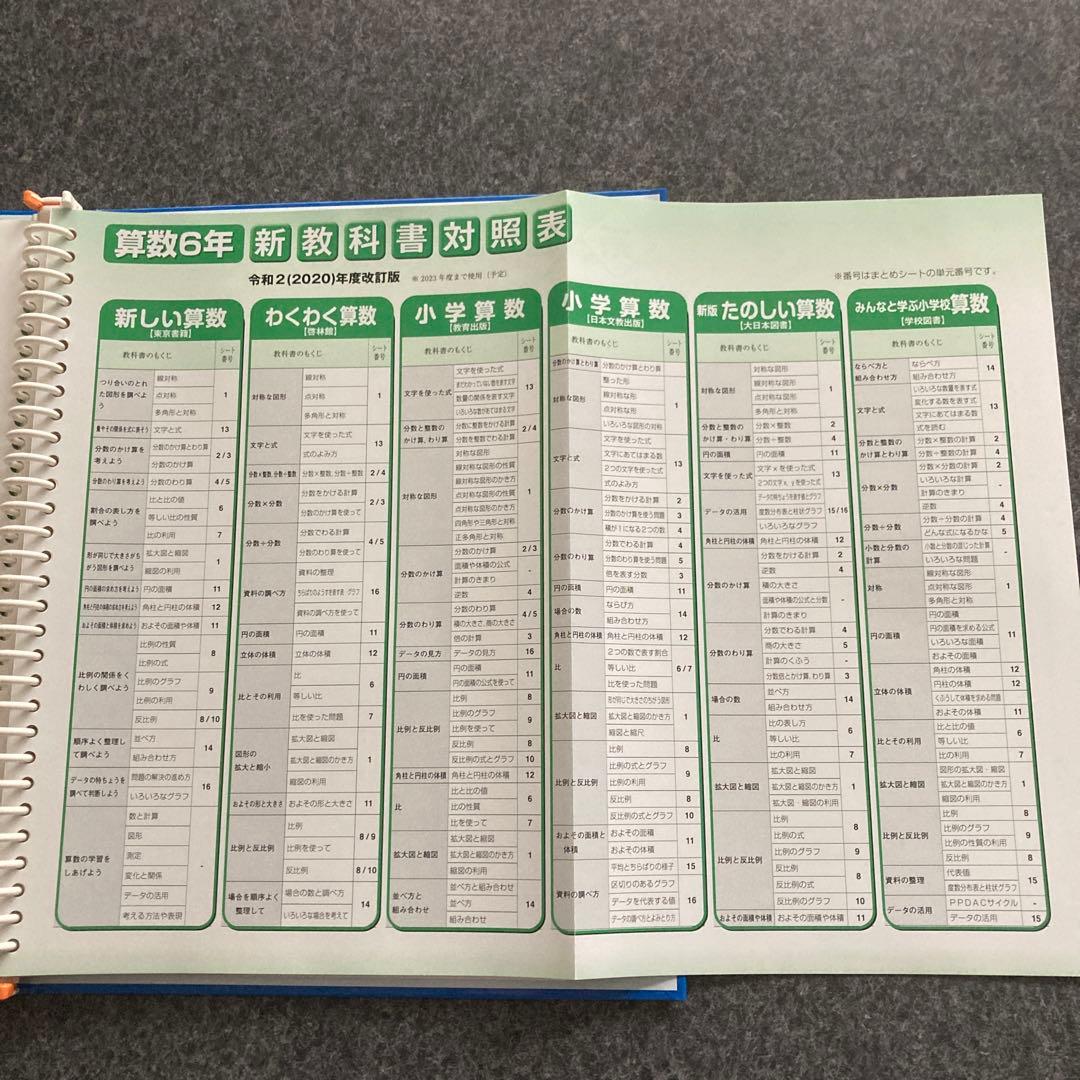 算数6年 新教科書対照表
令和2(2020)年度改訂版 ※2023年度まで使用（予定）
※番号はまとめシートの単元番号です。
新しい算数
【東京書籍】
教科書のもくじ シート番号
つり合いのとれた図形を調べよう 線対称 1
点対称
多角形と対称
量やその関係を式に表そう 文字と式 13
分数のかけ算を考えよう 分数のかけ算とわり算 2/3
分数のかけ算
分数のわり算を考えよう 分数のわり算 4/5
割合の表し方を調べよう 比と比の値 6
等しい比の性質
比の利用 7
形が同じで大きさがちがう図形を調べよう 拡大図と縮図 1
縮図の利用
円の面積の求め方を考えよう 円の面積 11
角柱と円柱の体積の求め方を考えよう 角柱と円柱の体積 12
およその面積と体積を求めよう およその面積や体積 11
比例の関係をくわしく調べよう 比例の性質 8
比例の式
比例のグラフ 9
比例の利用
反比例 8/10
順序よく整理して調べよう 並べ方 14
組み合わせ方
データの特ちょうを調べて判断しよう 問題の解決の進め方 16
いろいろなグラフ
算数の学習をしあげよう 数と計算 -
図形
測定
変化と関係
データの活用
考える方法や表現
わくわく算数
【啓林館】
教科書のもくじ シート番号
対称な図形 線対称 1
点対称
多角形と対称
文字と式 文字を使った式 13
式のよみ方
分数×整数、分数÷整数 分数×整数、分数÷整数 2/4
分数×分数 分数をかける計算 2/3
分数のかけ算を使って
分数÷分数 分数でわる計算 4/5
分数のわり算を使って
資料の調べ方 資料の整理 16
ちらばりのようすを表す表・グラフ
資料の調べ方を使って
円の面積 円の面積 11
立体の体積 立体の体積 12
比とその利用 比 6
等しい比
比を使った問題 7
図形の拡大と縮小 拡大図と縮図 1
拡大図と縮図のかき方
縮図の利用
およその形と大きさ およその形と大きさ 11
比例と反比例 比例 8/9
比例を使って
反比例 8/10
場合を順序よく整理して 場合の数と調べ方 14
いろいろな場合を考えて
小学算数
【教育出版】
教科書のもくじ シート番号
文字を使った式 文字を使った式 13
まだわかっていない数を表す文字
数量の関係を表す文字
いろいろな数があてはまる文字
分数と整数のかけ算、わり算 分数に整数をかける計算 2/4
分数を整数でわる計算
対称な図形 対称な図形 1
線対称な図形の性質
線対称な図形のかき方
点対称な図形の性質
点対称な図形のかき方
四角形や三角形と対称
正多角形と対称
分数のかけ算 分数のかけ算 2/3
面積や体積の公式 -
計算のきまり
逆数 4
分数のわり算 分数のわり算 4/5
積の大きさ、商の大きさ
倍の計算 3
データの見方 データの見方 16
円の面積 円の面積 11
円の面積の公式を使って
比例と反比例 比例 8
比例のグラフ 9
比例を使って
反比例 8
反比例の式とグラフ 10
角柱と円柱の体積 角柱と円柱の体積 12
比 比と比の値 6
比の性質
比を使って 7
拡大図と縮図 拡大図と縮図 1
拡大図と縮図のかき方
縮図の利用
並べ方と組み合わせ 並べ方と組み合わせ 14
並べ方
組み合わせ
小学算数
【日本文教出版】
教科書のもくじ シート番号
分数のかけ算とわり算 分数のかけ算とわり算
対称な図形 整った形 1
線対称な形
点対称な形
いろいろな図形の対称
文字と式 文字を使った式 13
文字にあてはまる数
2つの文字を使った式
式のよみ方
分数のかけ算 分数をかける計算 2
分数のかけ算を使う問題 3
積が1になる2つの数 4
分数のわり算 分数でわる計算 4
分数のわり算を使う問題 5
倍を表す分数 3
円の面積 円の面積 11
場合の数 ならび方 14
組み合わせ
角柱と円柱の体積 角柱と円柱の体積 12
比 2つの数で表す割合 6/7
等しい比
比を使った問題
拡大図と縮図 形が同じで大きさのちがう図形 1
拡大図と縮図のかき方
縮図と縮尺
比例と反比例 比例 8
比例の式とグラフ 9
比例の利用
反比例 8
反比例の式とグラフ 10
およその面積と体積 およその面積 11
およその体積
資料の調べ方 平均とちらばりの様子 15
区切りのあるグラフ 16
データを代表する値
データの調べ方とよみとり方
新版 たのしい算数
【大日本図書】
教科書のもくじ シート番号
対称な図形 対称な図形 1
線対称な図形
点対称な図形
多角形と対称
分数と整数のかけ算・わり算 分数×整数 2
分数÷整数 4
円の面積 円の面積 11
文字を使った式 文字xを使った式 13
2つの文字x、yを使った式
データの活用 データの特ちょうを表す値とグラフ 15/16
度数分布表と柱状グラフ
いろいろなグラフ
角柱と円柱の体積 角柱と円柱の体積 12
分数のかけ算 分数をかける計算 2
逆数 4
積の大きさ -
面積や体積の公式と分数
計算のきまり
分数のわり算 分数でわる計算 4
商の大きさ 5
計算のくふう -
分数倍とかけ算、わり算 3
場合の数 並べ方 14
組み合わせ方
比 比の表し方 6
等しい比
比の利用 7
拡大図と縮図 拡大図と縮図 1
拡大図と縮図のかき方
拡大図・縮図の利用
比例と反比例 比例 8
比例の式
比例のグラフ 9
反比例 8
反比例の式
反比例のグラフ 10
およその面積や体積 およその面積や体積 11
みんなと学ぶ小学校算数
【学校図書】
教科書のもくじ シート番号
ならべ方と組み合わせ方 ならべ方 14
組み合わせ方
文字と式 いろいろな数量を表す式 13
変化する数を表す式
文字にあてはまる数
式を読む
分数と整数のかけ算とわり算 分数×整数の計算 2
分数÷整数の計算 4
分数×分数 分数×分数の計算 2
いろいろな計算 -
計算のきまり
逆数 4
分数÷分数 分数÷分数の計算 4
どんな式になるかな 5
小数と分数の計算 小数と分数の混じった計算 -
いろいろな問題
対称 線対称な図形 1
点対称な図形
多角形と対称
円の面積 円の面積 11
円の面積を求める公式
いろいろな面積
およその面積
立体の体積 角柱の体積 12
円柱の体積 12
くふうして体積を求める問題
およその体積 11
比とその利用 比と比の値 6
等しい比
比の利用 7
拡大図と縮図 図形の拡大図・縮図 1
拡大図と縮図のかき方
縮図の利用
比例と反比例 比例 8
比例のグラフ 9
比例の性質の利用
反比例 8
資料の整理 代表値 15
度数分布表と柱状グラフ
データの活用 PPDACサイクル -
データの活用 15